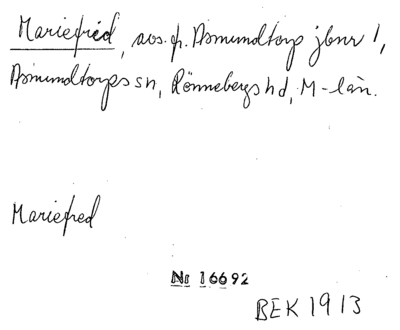 Mariefred, avs. fr. Asmundtorp jbnr 1,
Asmundtorps sn, Rönnebergs hd, M-län.
Mariefred
Nr 16692
BEK 1913